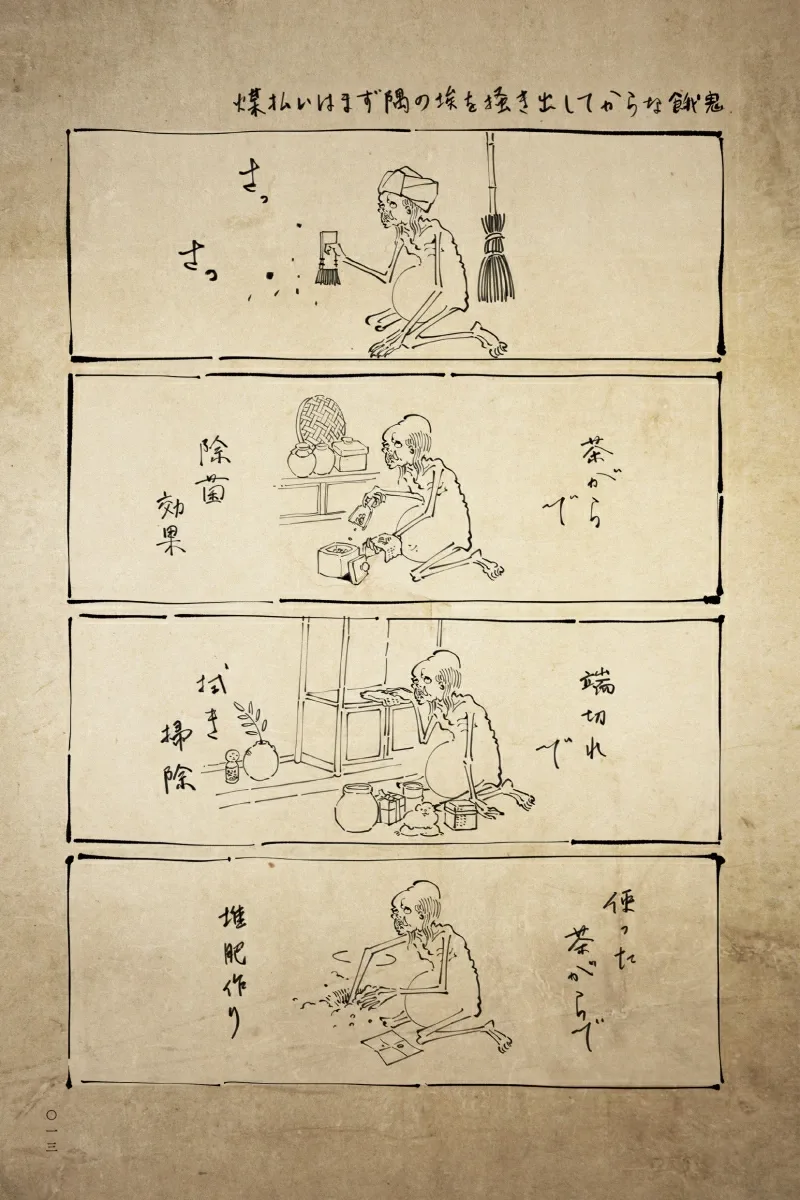 煤払いはまず隅の埃を掻き出してからな餓鬼
さっ
さっ
茶がら
で
除菌
効果
端切れ
で
拭き
掃除
使った
茶がらで
堆肥作り
〇一三